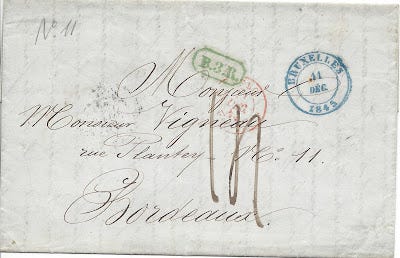 No 11
B.3.R.
BRUXELLES
11
DEC.
1845
Monsieur
Monsieur Vigneau
rue Plantey - No. 11.
Bordeaux